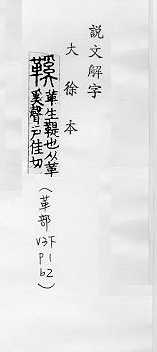 說文解字
大徐本
鞵 革生鞮也从革
奚聲戶佳切
(革部 V3下 P1 b2)